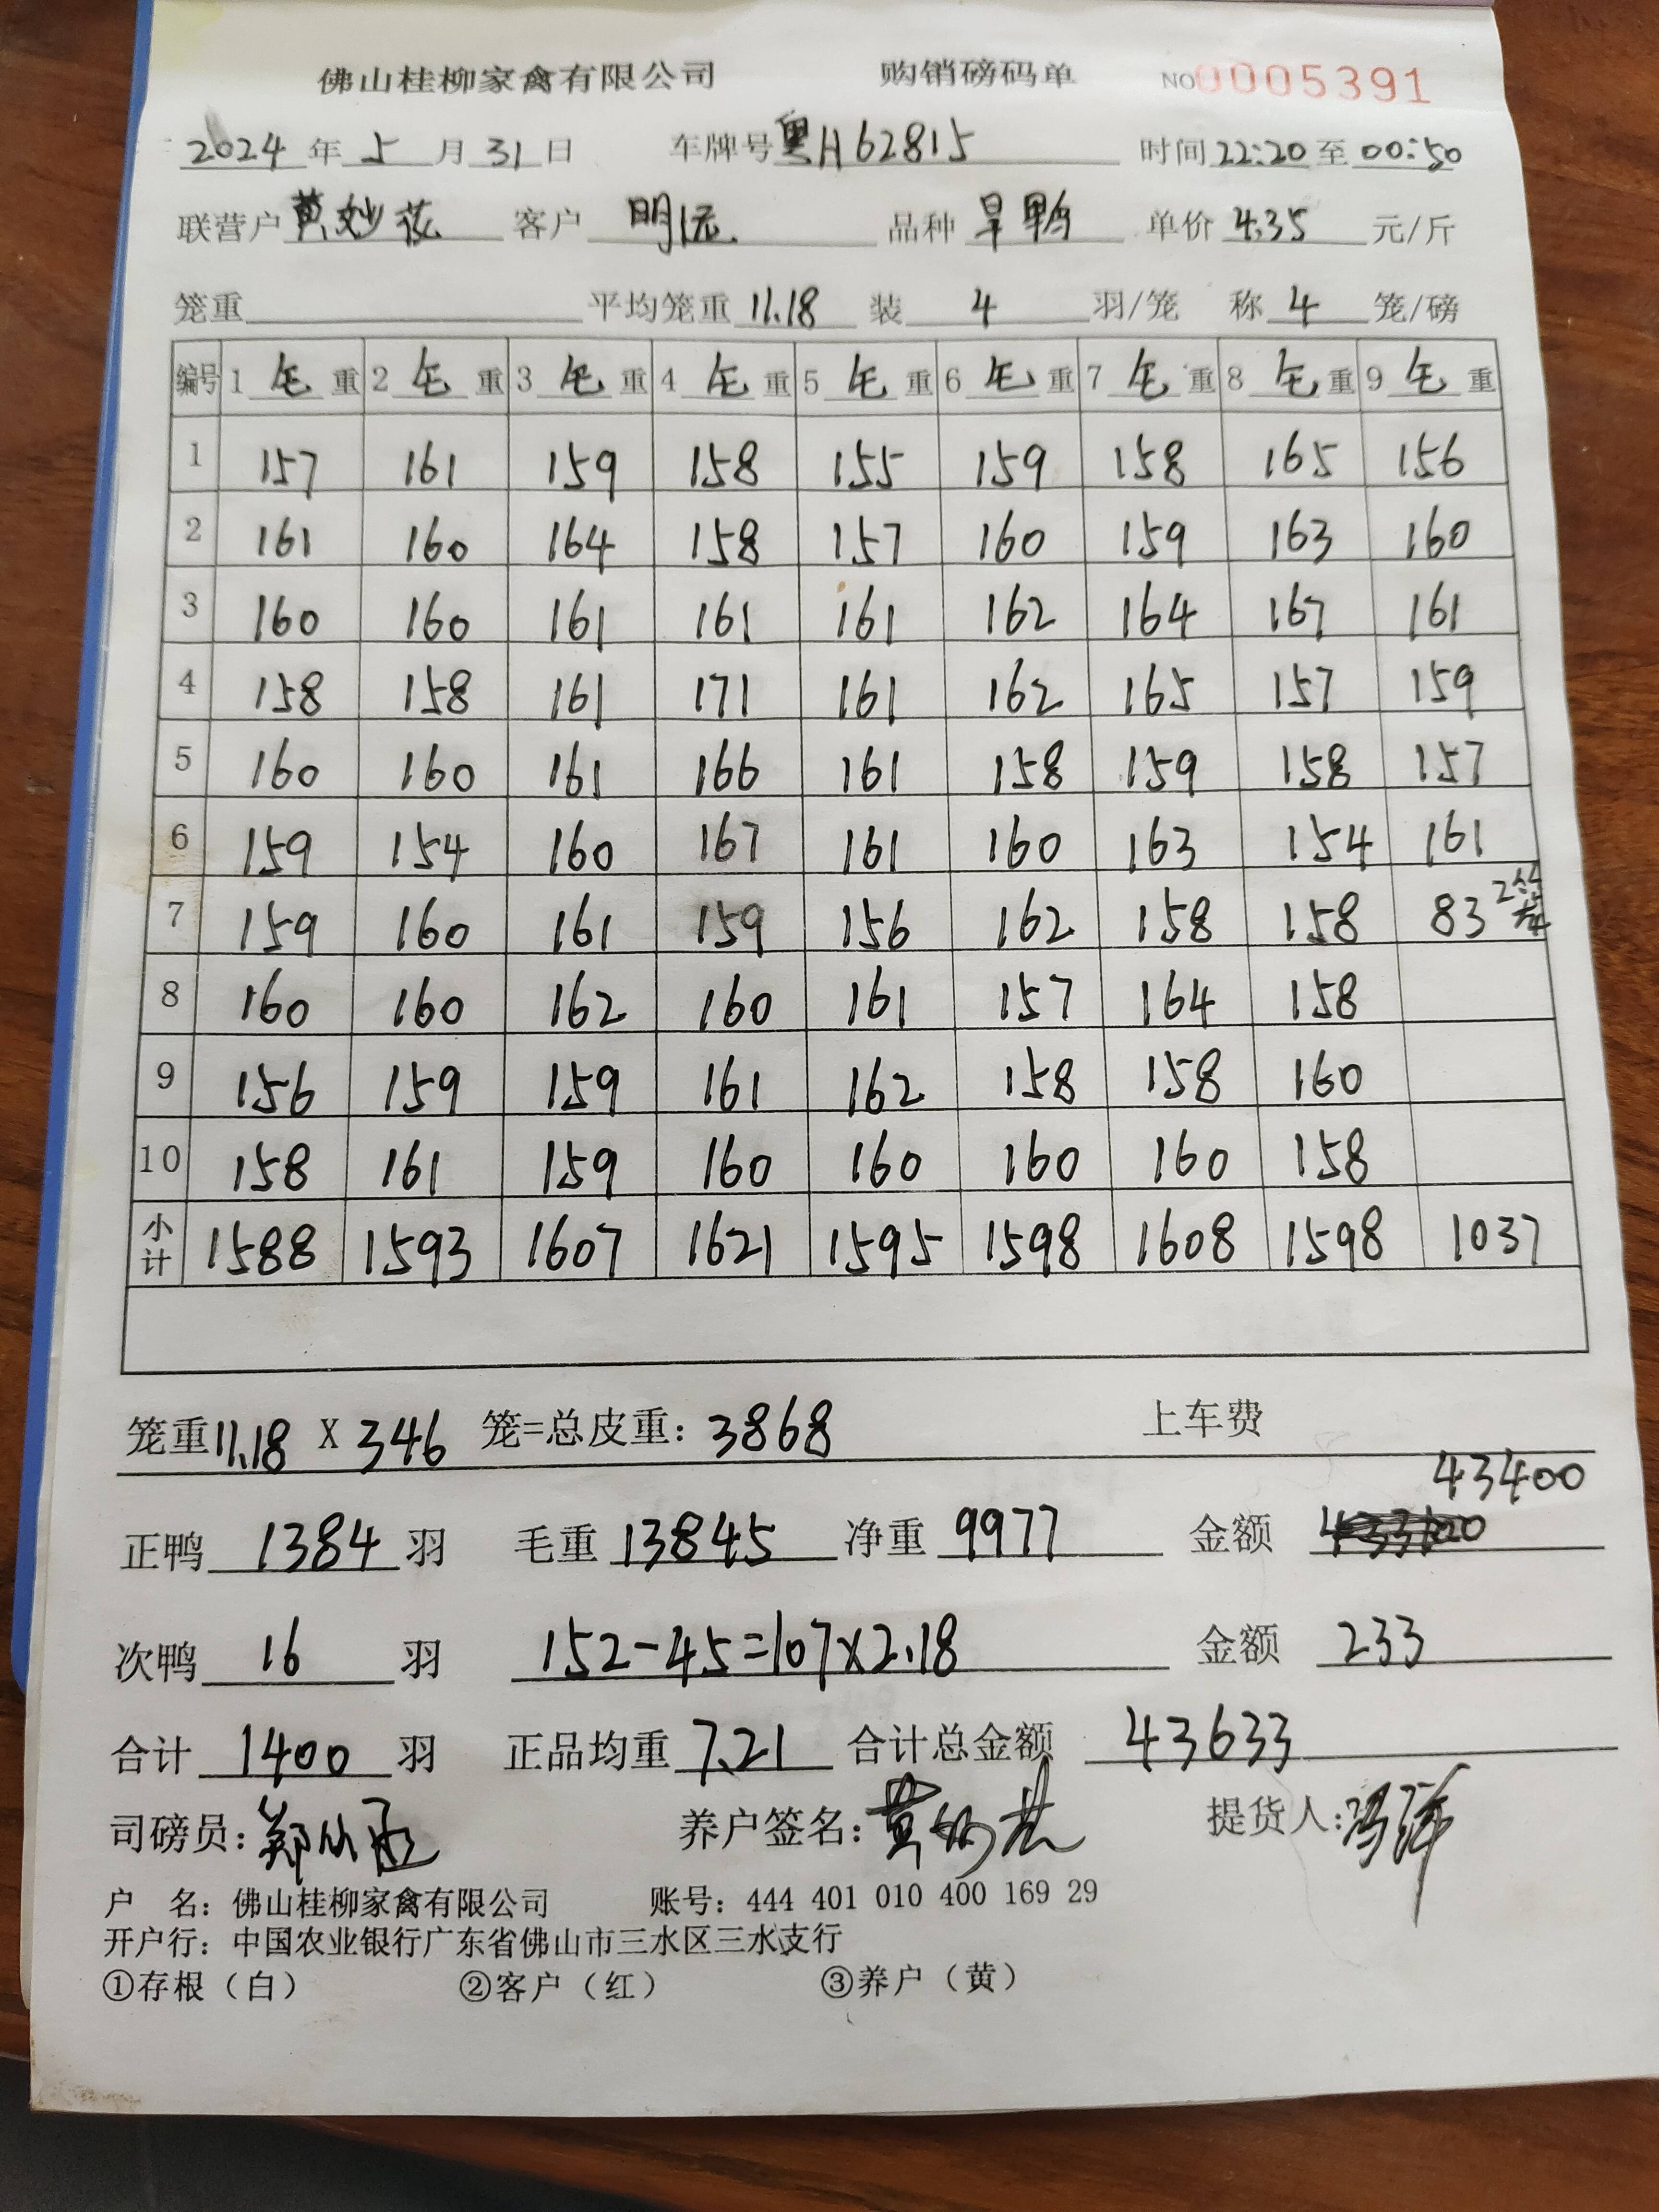 佛山桂柳家禽有限公司 购销磅码单 NO0005391
2024年5月31日 车牌号 粤H62815 时间22:20至00:50
联营户 黄妙花 客户 明远 品种 旱鸭 单价 4.35 元/斤
笼重 平均笼重 11.18 装 4 羽/笼 称 4 笼/磅
编号 1 毛 重 2 毛 重 3 毛 重 4 毛 重 5 毛 重 6 毛 重 7 毛 重 8 毛 重 9 毛 重
1 157 161 159 158 155 159 158 165 156
2 161 160 164 158 157 160 159 163 160
3 160 160 161 161 161 162 164 167 161
4 158 158 161 171 161 162 165 157 159
5 160 160 161 166 161 158 159 158 157
6 159 154 160 167 161 160 163 154 161
7 159 160 161 159 156 162 158 158 83 2笼
8 160 160 162 160 161 157 164 158
9 156 159 159 161 162 158 158 160
10 158 161 159 160 160 160 160 158
小计 1588 1593 1607 1621 1595 1598 1608 1598 1037
笼重11.18 X 346 笼=总皮重: 3868 上车费
43400
正鸭 1384 羽 毛重 13845 净重 9977 金额
次鸭 16 羽 152-45=107x2.18 金额 233
合计 1400 羽 正品均重 7.21 合计总金额 43633
司磅员: 养户签名: 黄妙花 提货人:
户 名: 佛山桂柳家禽有限公司 账号: 444 401 010 400 169 29
开户行: 中国农业银行广东省佛山市三水区三水支行
①存根（白） ②客户（红） ③养户（黄）